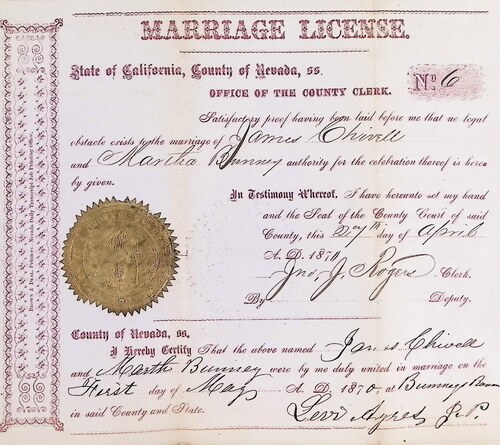 MARRIAGE LICENSE.
State of California, County of Nevada, ss.
No 6
OFFICE OF THE COUNTY CLERK.
Satisfactory proof having been laid before me that no legal
obstacle exists to the marriage of James Chivell
and Martha Bunney authority for the celebration thereof is here
by given.
In Testimony Whereof, I have hereunto set my hand
and the Seal of the County Court of said
County, this 27th day of April
A. D. 1870
Jno. J. Rogers Clerk.
By Deputy.
County of Nevada, ss.
I Hereby Certify That the above named James Chivell
and Martha Bunney were by me duly united in marriage on the
First day of May A. D. 1870, at Bunney
in said County and State.
Levi Ayres J.P.
Brown & Deal, Printers, Nevada Daily Transcript Job Printing Office.